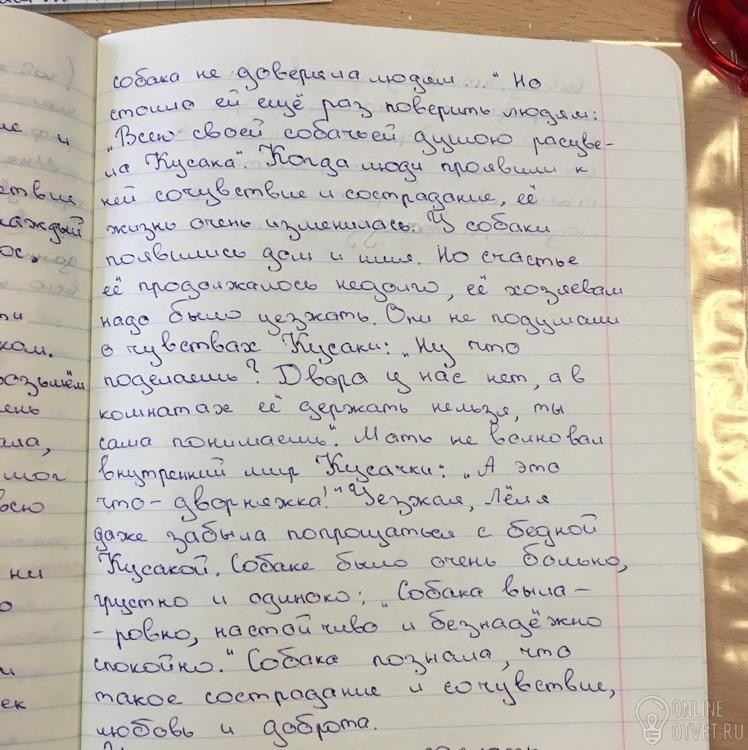 собака не доверяла людям..." Но
стоило ей ещё раз поверить людям:
„Всею своей собачьей душою расцве-
ла "Кусака". Когда люди проявили к
ней сочувствие и сострадание, её
жизнь очень изменилась. У собаки
появились дом и имя. Но счастье
её продолжалось недолго, её хозяевам
надо было уезжать. Они не подумали
о чувствах Кусаки: „Ну что
поделаешь? Двора у нас нет, а в
комнатах её держать нельзя, ты
сама понимаешь". Мать не волновал
внутренний мир Кусачки: „А это
что - дворняжка!" Уезжая, Лёля
даже забыла попрощаться с бедной
Кусакой. Собаке было очень больно,
грустно и одиноко: „Собака выла -
- ровно, настойчиво и безнадёжно
спокойно." Собака познала, что
такое сострадание и сочувствие,
любовь и доброта.
ие и
ствие
каждый
ос.
ти
ком.
разышём
ень
ала,
мог
всю
ни
о
и
ек
ONLINE
OTVET.RU